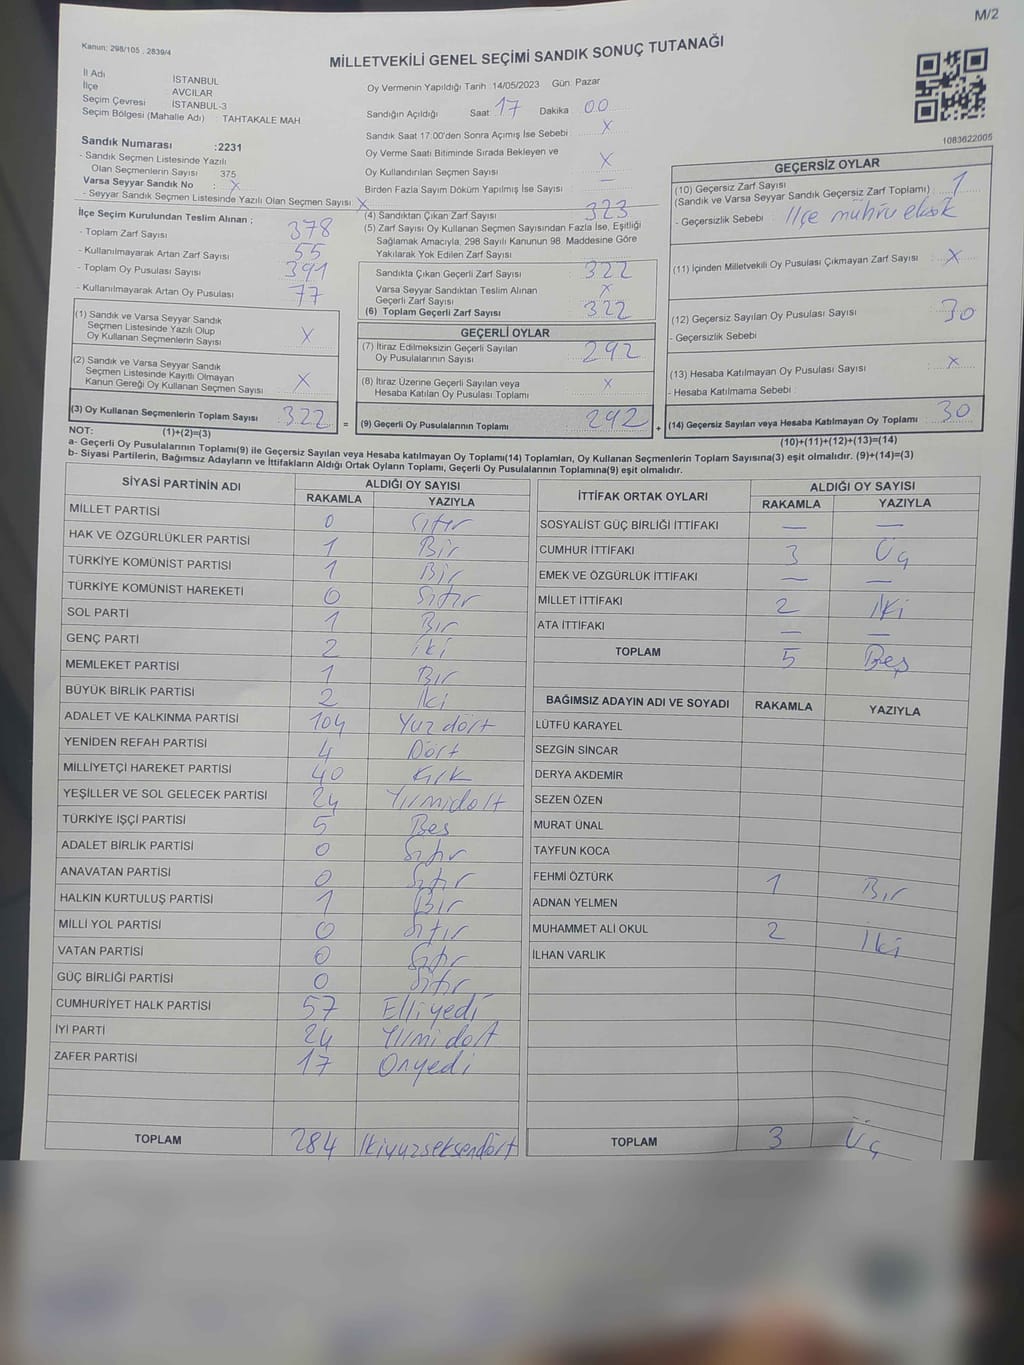 M/2
Kanun: 298/105 , 2839/4
MİLLETVEKİLİ GENEL SEÇİMİ SANDIK SONUÇ TUTANAĞI
İl Adı İSTANBUL
İlçe AVCILAR
Seçim Çevresi İSTANBUL-3
Seçim Bölgesi (Mahalle Adı) : TAHTAKALE MAH.
Oy Vermenin Yapıldığı Tarih : 14/05/2023 Gün: Pazar
Sandığın Açıldığı Saat 17 Dakika 00
Sandık Saat 17:00'den Sonra Açımış İse Sebebi : X
Oy Verme Saati Bitiminde Sırada Bekleyen ve
Oy Kullandırılan Seçmen Sayısı : X
Birden Fazla Sayım Döküm Yapılmış İse Sayısı : —
1083622005
Sandık Numarası :2231
- Sandık Seçmen Listesinde Yazılı
Olan Seçmenlerin Sayısı 375
Varsa Seyyar Sandık No : X
- Seyyar Sandık Seçmen Listesinde Yazılı Olan Seçmen Sayısı : X
İlçe Seçim Kurulundan Teslim Alınan :
- Toplam Zarf Sayısı 378
- Kullanılmayarak Artan Zarf Sayısı 55
- Toplam Oy Pusulası Sayısı 391
- Kullanılmayarak Artan Oy Pusulası 77
(1) Sandık ve Varsa Seyyar Sandık
Seçmen Listesinde Yazılı Olup
Oy Kullanan Seçmenlerin Sayısı X
(2) Sandık ve Varsa Seyyar Sandık
Seçmen Listesinde Kayıtlı Olmayan
Kanun Gereği Oy Kullanan Seçmen Sayısı X
(3) Oy Kullanan Seçmenlerin Toplam Sayısı 322 =
(1)+(2)=(3)
(4) Sandıktan Çıkan Zarf Sayısı 323
(5) Zarf Sayısı Oy Kullanan Seçmen Sayısından Fazla İse, Eşitliği
Sağlamak Amacıyla, 298 Sayılı Kanunun 98. Maddesine Göre
Yakılarak Yok Edilen Zarf Sayısı
Sandıkta Çıkan Geçerli Zarf Sayısı 322
Varsa Seyyar Sandıktan Teslim Alınan
Geçerli Zarf Sayısı X
(6) Toplam Geçerli Zarf Sayısı 322
GEÇERLİ OYLAR
(7) İtiraz Edilmeksizin Geçerli Sayılan
Oy Pusulalarının Sayısı 292
(8) İtiraz Üzerine Geçerli Sayılan veya
Hesaba Katılan Oy Pusulası Toplamı X
(9) Geçerli Oy Pusulalarının Toplamı 292 +
GEÇERSİZ OYLAR
(10) Geçersiz Zarf Sayısı
(Sandık ve Varsa Seyyar Sandık Geçersiz Zarf Toplamı) 1
- Geçersizlik Sebebi : İlçe mührü eksik
(11) İçinden Milletvekili Oy Pusulası Çıkmayan Zarf Sayısı : X
(12) Geçersiz Sayılan Oy Pusulası Sayısı 30
- Geçersizlik Sebebi
(13) Hesaba Katılmayan Oy Pusulası Sayısı X
- Hesaba Katılmama Sebebi :
(14) Geçersiz Sayılan veya Hesaba Katılmayan Oy Toplamı 30
(10)+(11)+(12)+(13)=(14)
NOT:
a- Geçerli Oy Pusulalarının Toplamı(9) ile Geçersiz Sayılan veya Hesaba katılmayan Oy Toplamı(14) Toplamları, Oy Kullanan Seçmenlerin Toplam Sayısına(3) eşit olmalıdır. (9)+(14)=(3)
b- Siyasi Partilerin, Bağımsız Adayların ve İttifakların Aldığı Ortak Oyların Toplamı, Geçerli Oy Pusulalarının Toplamına(9) eşit olmalıdır.
SİYASİ PARTİNİN ADI ALDIĞI OY SAYISI
RAKAMLA YAZIYLA
MİLLET PARTİSİ 0 Sıfır
HAK VE ÖZGÜRLÜKLER PARTİSİ 1 Bir
TÜRKİYE KOMÜNİST PARTİSİ 1 Bir
TÜRKİYE KOMÜNİST HAREKETİ 0 Sıfır
SOL PARTİ 1 Bir
GENÇ PARTİ 2 iki
MEMLEKET PARTİSİ 1 Bir
BÜYÜK BİRLİK PARTİSİ 2 İki
ADALET VE KALKINMA PARTİSİ 104 Yüz dört
YENİDEN REFAH PARTİSİ 4 Dört
MİLLİYETÇİ HAREKET PARTİSİ 40 Kırk
YEŞİLLER VE SOL GELECEK PARTİSİ 24 Yirmidört
TÜRKİYE İŞÇİ PARTİSİ 5 Beş
ADALET BİRLİK PARTİSİ 0 Sıfır
ANAVATAN PARTİSİ 0 Sıfır
HALKIN KURTULUŞ PARTİSİ 1 Bir
MİLLİ YOL PARTİSİ 0 Sıfır
VATAN PARTİSİ 0 Sıfır
GÜÇ BİRLİĞİ PARTİSİ 0 Sıfır
CUMHURİYET HALK PARTİSİ 57 Elliyedi
İYİ PARTİ 24 Yirmi dört
ZAFER PARTİSİ 17 Onyedi
TOPLAM 284 İkiyüzseksendört
İTTİFAK ORTAK OYLARI ALDIĞI OY SAYISI
RAKAMLA YAZIYLA
SOSYALİST GÜÇ BİRLİĞİ İTTİFAKI — —
CUMHUR İTTİFAKI 3 Üç
EMEK VE ÖZGÜRLÜK İTTİFAKI — —
MİLLET İTTİFAKI 2 İki
ATA İTTİFAKI — —
TOPLAM 5 Beş
BAĞIMSIZ ADAYIN ADI VE SOYADI RAKAMLA YAZIYLA
LÜTFÜ KARAYEL
SEZGİN SİNCAR
DERYA AKDEMİR
SEZEN ÖZEN
MURAT ÜNAL
TAYFUN KOCA
FEHMİ ÖZTÜRK 1 Bir
ADNAN YELMEN
MUHAMMET ALİ OKUL 2 İki
İLHAN VARLIK
TOPLAM 3 Üç